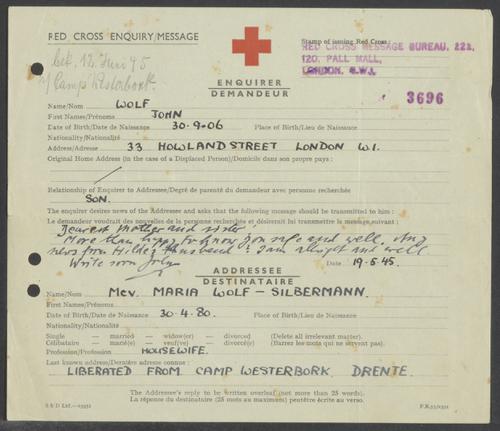 RED CROSS ENQUIRY/MESSAGE
Stamp of issuing Red Cross:
RED CROSS MESSAGE BUREAU, 221,
120. PALL MALL,
LONDON, S.W.1.
12. Juni 45
Camp Westerbork.
3696
ENQUIRER
DEMANDEUR
Name/Nom WOLF
First Names/Prénoms JOHN
Date of Birth/Date de Naissance 30-9-06 Place of Birth/Lieu de Naissance
Nationality/Nationalité
Address/Adresse 33 HOWLAND STREET LONDON W.1.
Original Home Address (in the case of a Displaced Person)/Domicile dans son propre pays :
Relationship of Enquirer to Addressee/Degré de parenté du demandeur avec personne recherchée
SON.
The enquirer desires news of the Addressee and asks that the following message should be transmitted to him :
Le demandeur voudrait des nouvelles de la personne recherchée et désirerait lui transmettre le message suivant :
Dearest Mother and sister
More than happy to know you safe and well. Any
news from Hilde's Husband? I am alright and well
Write soon John
Date 19.5.45.
ADDRESSEE
DESTINATAIRE
Name/Nom Mev. MARIA WOLF – SILBERMANN.
First Names/Prénoms
Date of Birth/Date de Naissance 30-4-80. Place of Birth/Lieu de Naissance
Nationality/Nationalité
Single — married — widow(er) — divorced (Delete all irrelevant matter).
Célibataire — marié(e) — veuf(ve) — divorcé(e) (Barrez les mots qui ne servent pas).
Profession/Profession HOUSEWIFE.
Last known address/Dernière adresse connue :
LIBERATED FROM CAMP WESTERBORK, DRENTE.
The Addressee's reply to be written overleaf (not more than 25 words).
La réponse du destinataire (25 mots au maximum) peutêtre écrite au verso.